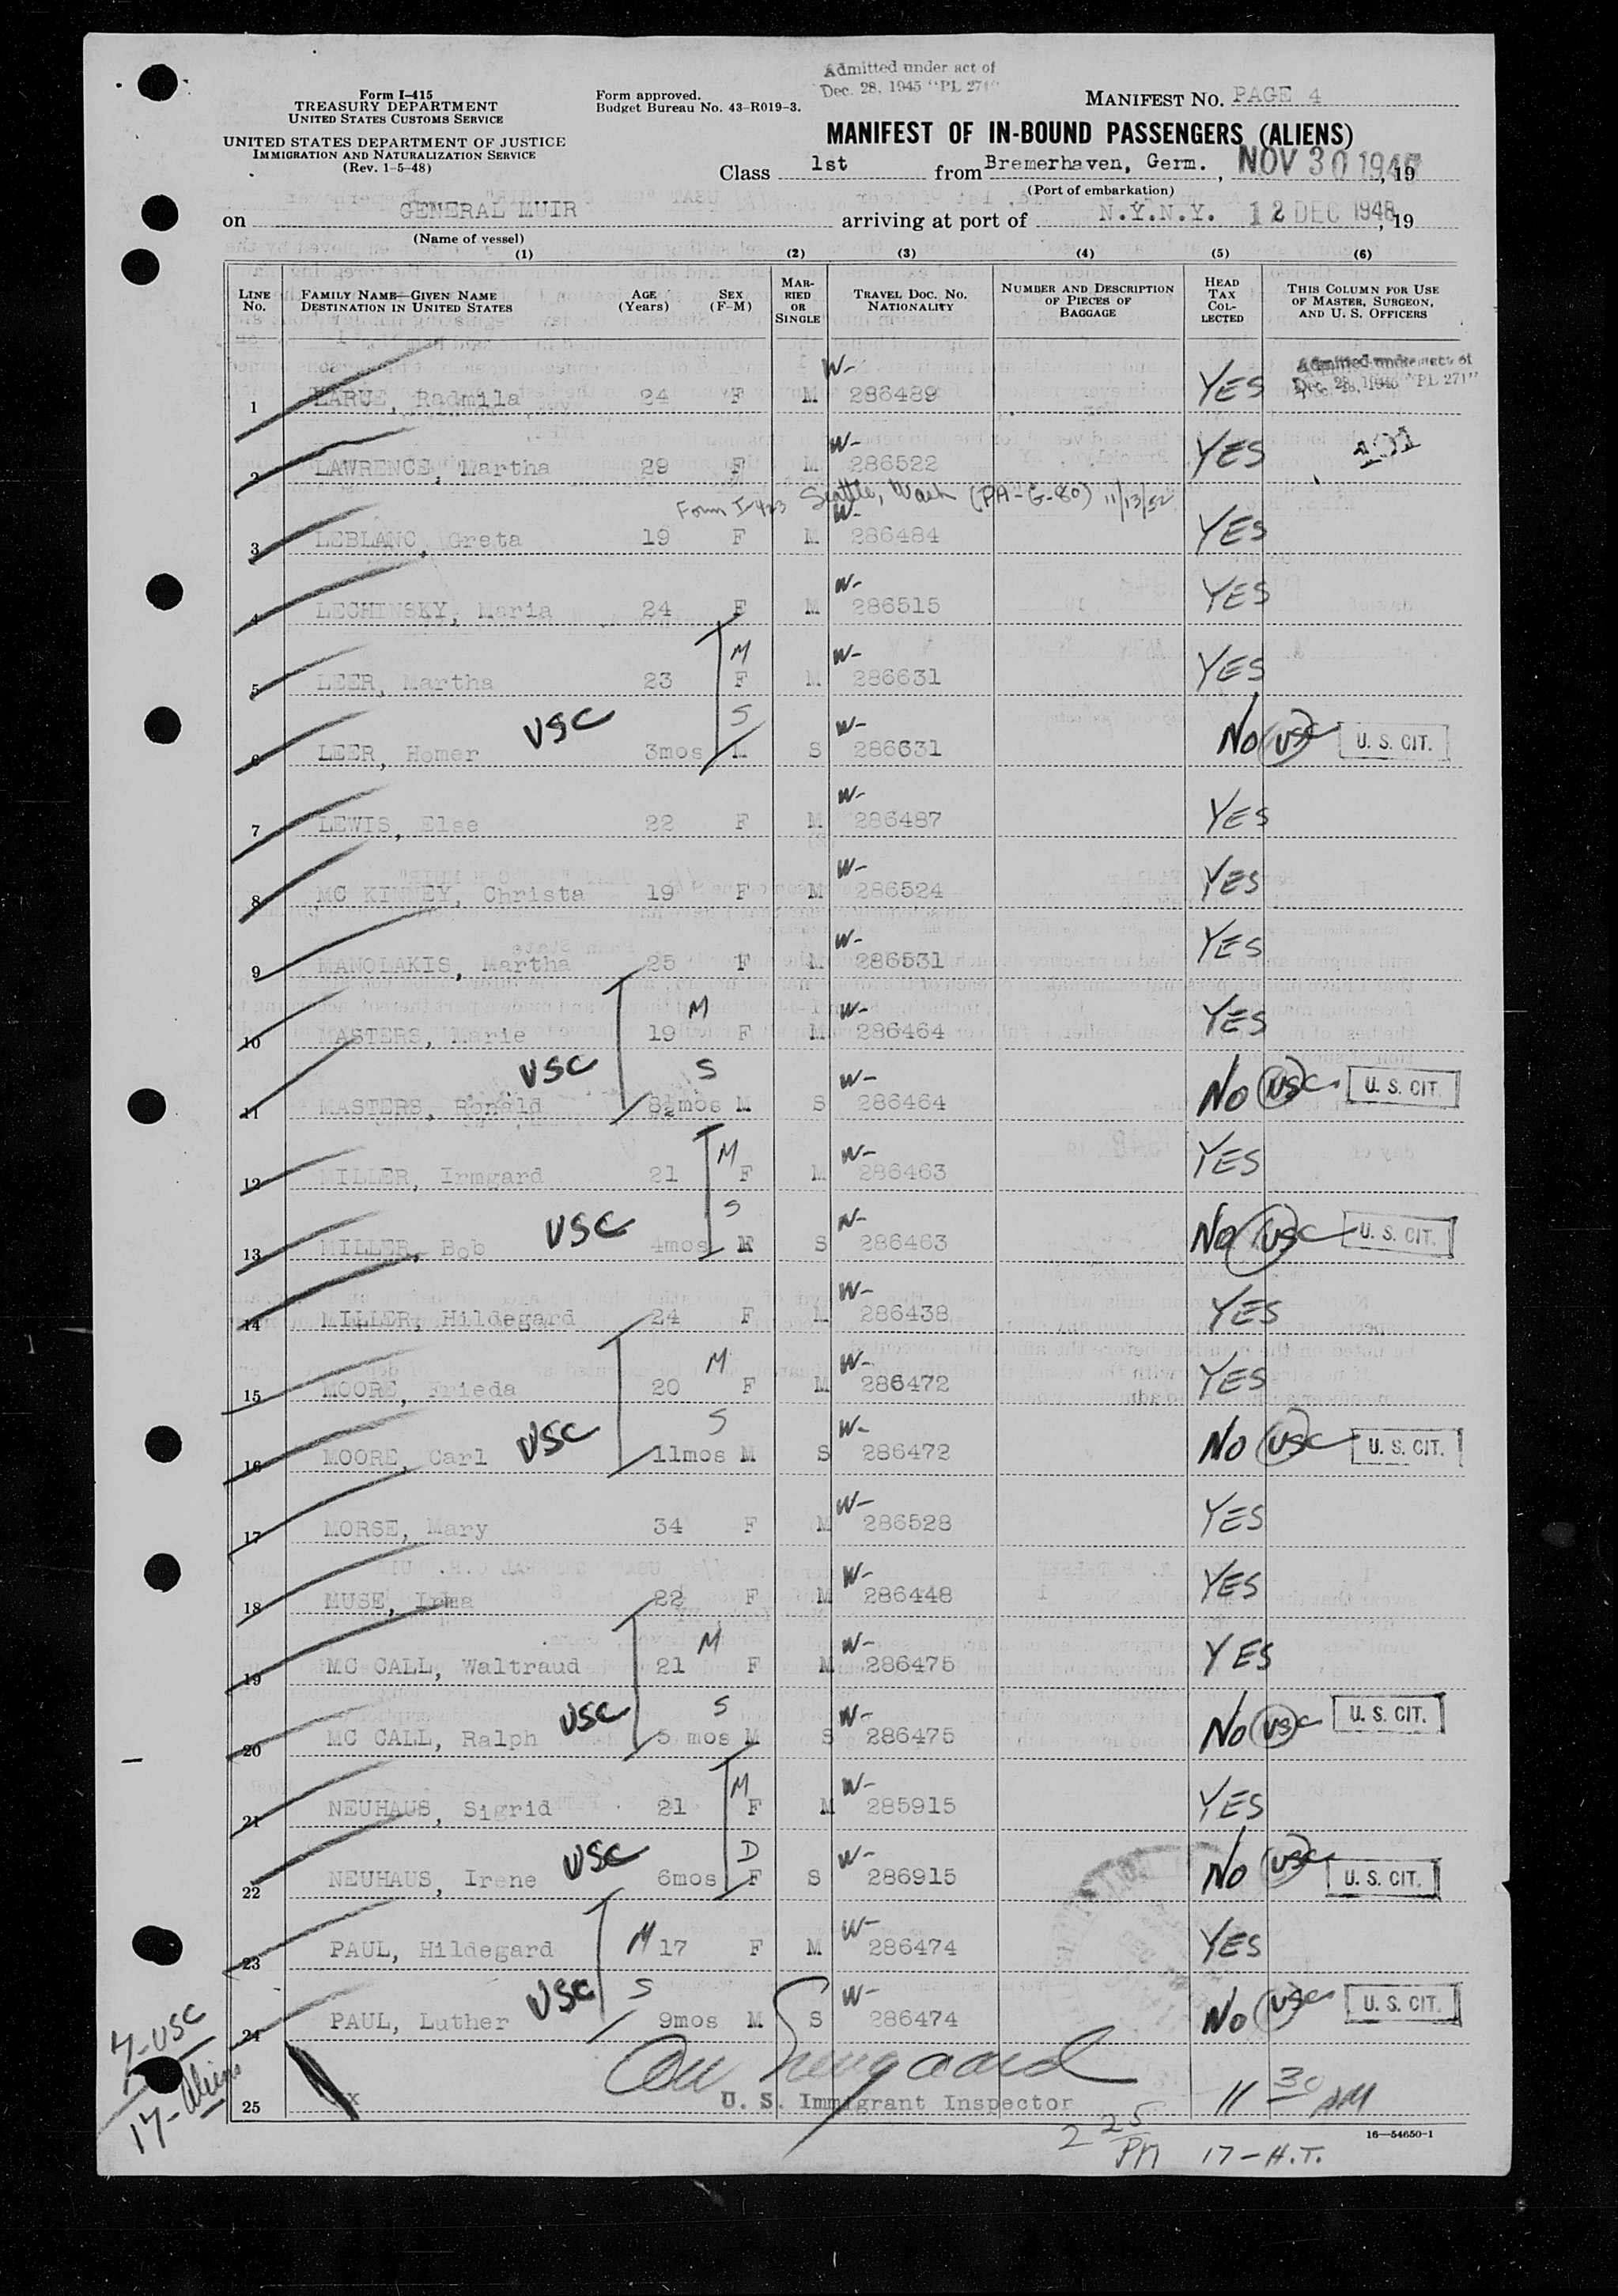 Form I-415
TREASURY DEPARTMENT
UNITED STATES CUSTOMS SERVICE
UNITED STATES DEPARTMENT OF JUSTICE
IMMIGRATION AND NATURALIZATION SERVICE
(Rev. 1-5-48)
Form approved.
Budget Bureau No. 43-R019-3.
Admitted under act of
Dec. 28, 1945 "PL 271"
MANIFEST NO. PAGE 4
MANIFEST OF IN-BOUND PASSENGERS (ALIENS)
Class 1st from Bremerhaven, Germ., NOV 30 1947, 19
(Port of embarkation)
on GENERAL MUIR arriving at port of N.Y.N.Y. 12 DEC 1948, 19
(Name of vessel)
(1) (2) (3) (4) (5) (6)
LINE No. FAMILY NAME—GIVEN NAME DESTINATION IN UNITED STATES AGE (Years) SEX (F-M) MARRIED OR SINGLE TRAVEL DOC. NO. NATIONALITY NUMBER AND DESCRIPTION OF PIECES OF BAGGAGE HEAD TAX COLLECTED THIS COLUMN FOR USE OF MASTER, SURGEON, AND U. S. OFFICERS
1 LARUE, Radmila 24 F M W- 286489 YES Admitted under act of Dec. 28, 1945 "PL 271"
2 LAWRENCE, Martha 29 F M W- 286522 YES 101
Form I-423 Seattle, Wash (PA-G-80) 11/13/52
3 LEBLANC, Greta 19 F M W- 286484 YES
4 LECHINSKY, Maria 24 F M W- 286515 YES
5 LEER, Martha 23 M F M W- 286631 YES
6 LEER, Homer USC 3mos S M S W- 286631 No USC U. S. CIT.
7 LEWIS, Else 22 F M W- 286487 YES
8 MC KINNEY, Christa 19 F M W- 286524 YES
9 MANOLAKIS, Martha 25 F M W- 286531 YES
10 MASTERS, Marie 19 M F M W- 286464 YES
11 MASTERS, Ronald USC 8½mos S M S W- 286464 No USC U. S. CIT.
12 MILLER, Irmgard 21 M F M W- 286463 YES
13 MILLER, Bob USC 4mos S M S W- 286463 No USC U. S. CIT.
14 MILLER, Hildegard 24 F M W- 286438 YES
15 MOORE, Frieda 20 M F M W- 286472 YES
16 MOORE, Carl USC 11mos S M S W- 286472 No USC U. S. CIT.
17 MORSE, Mary 34 F M W- 286528 YES
18 MUSE, Irma 22 F M W- 286448 YES
19 MC CALL, Waltraud 21 M F M W- 286475 YES
20 MC CALL, Ralph USC 5 mos S M S W- 286475 No USC U. S. CIT.
21 NEUHAUS, Sigrid 21 M F M W- 285915 YES
22 NEUHAUS, Irene USC 6mos D F S W- 286915 No USC U. S. CIT.
23 PAUL, Hildegard M 17 F M W- 286474 YES
24 PAUL, Luther USC S 9mos M S W- 286474 No USC U. S. CIT.
7-USC
17-Aliens
25 x U. S. Immigrant Inspector 11 30 AM
16—54650-1
2 25 PM 17-H.T.